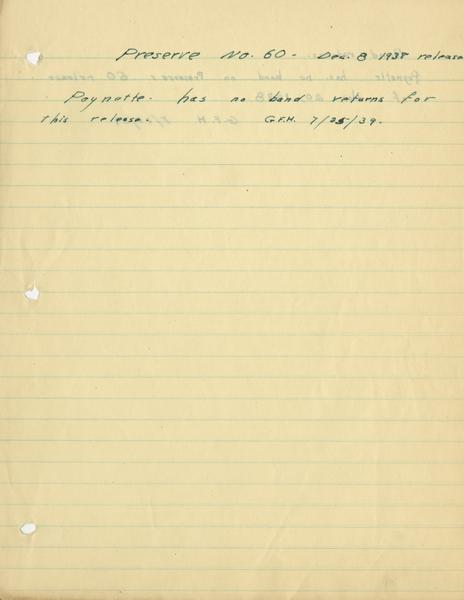 Preserve No. 60 - Dec. 8 1938 release
Poynette. has no band returns for
this release. G.F.H. 7/25/39.